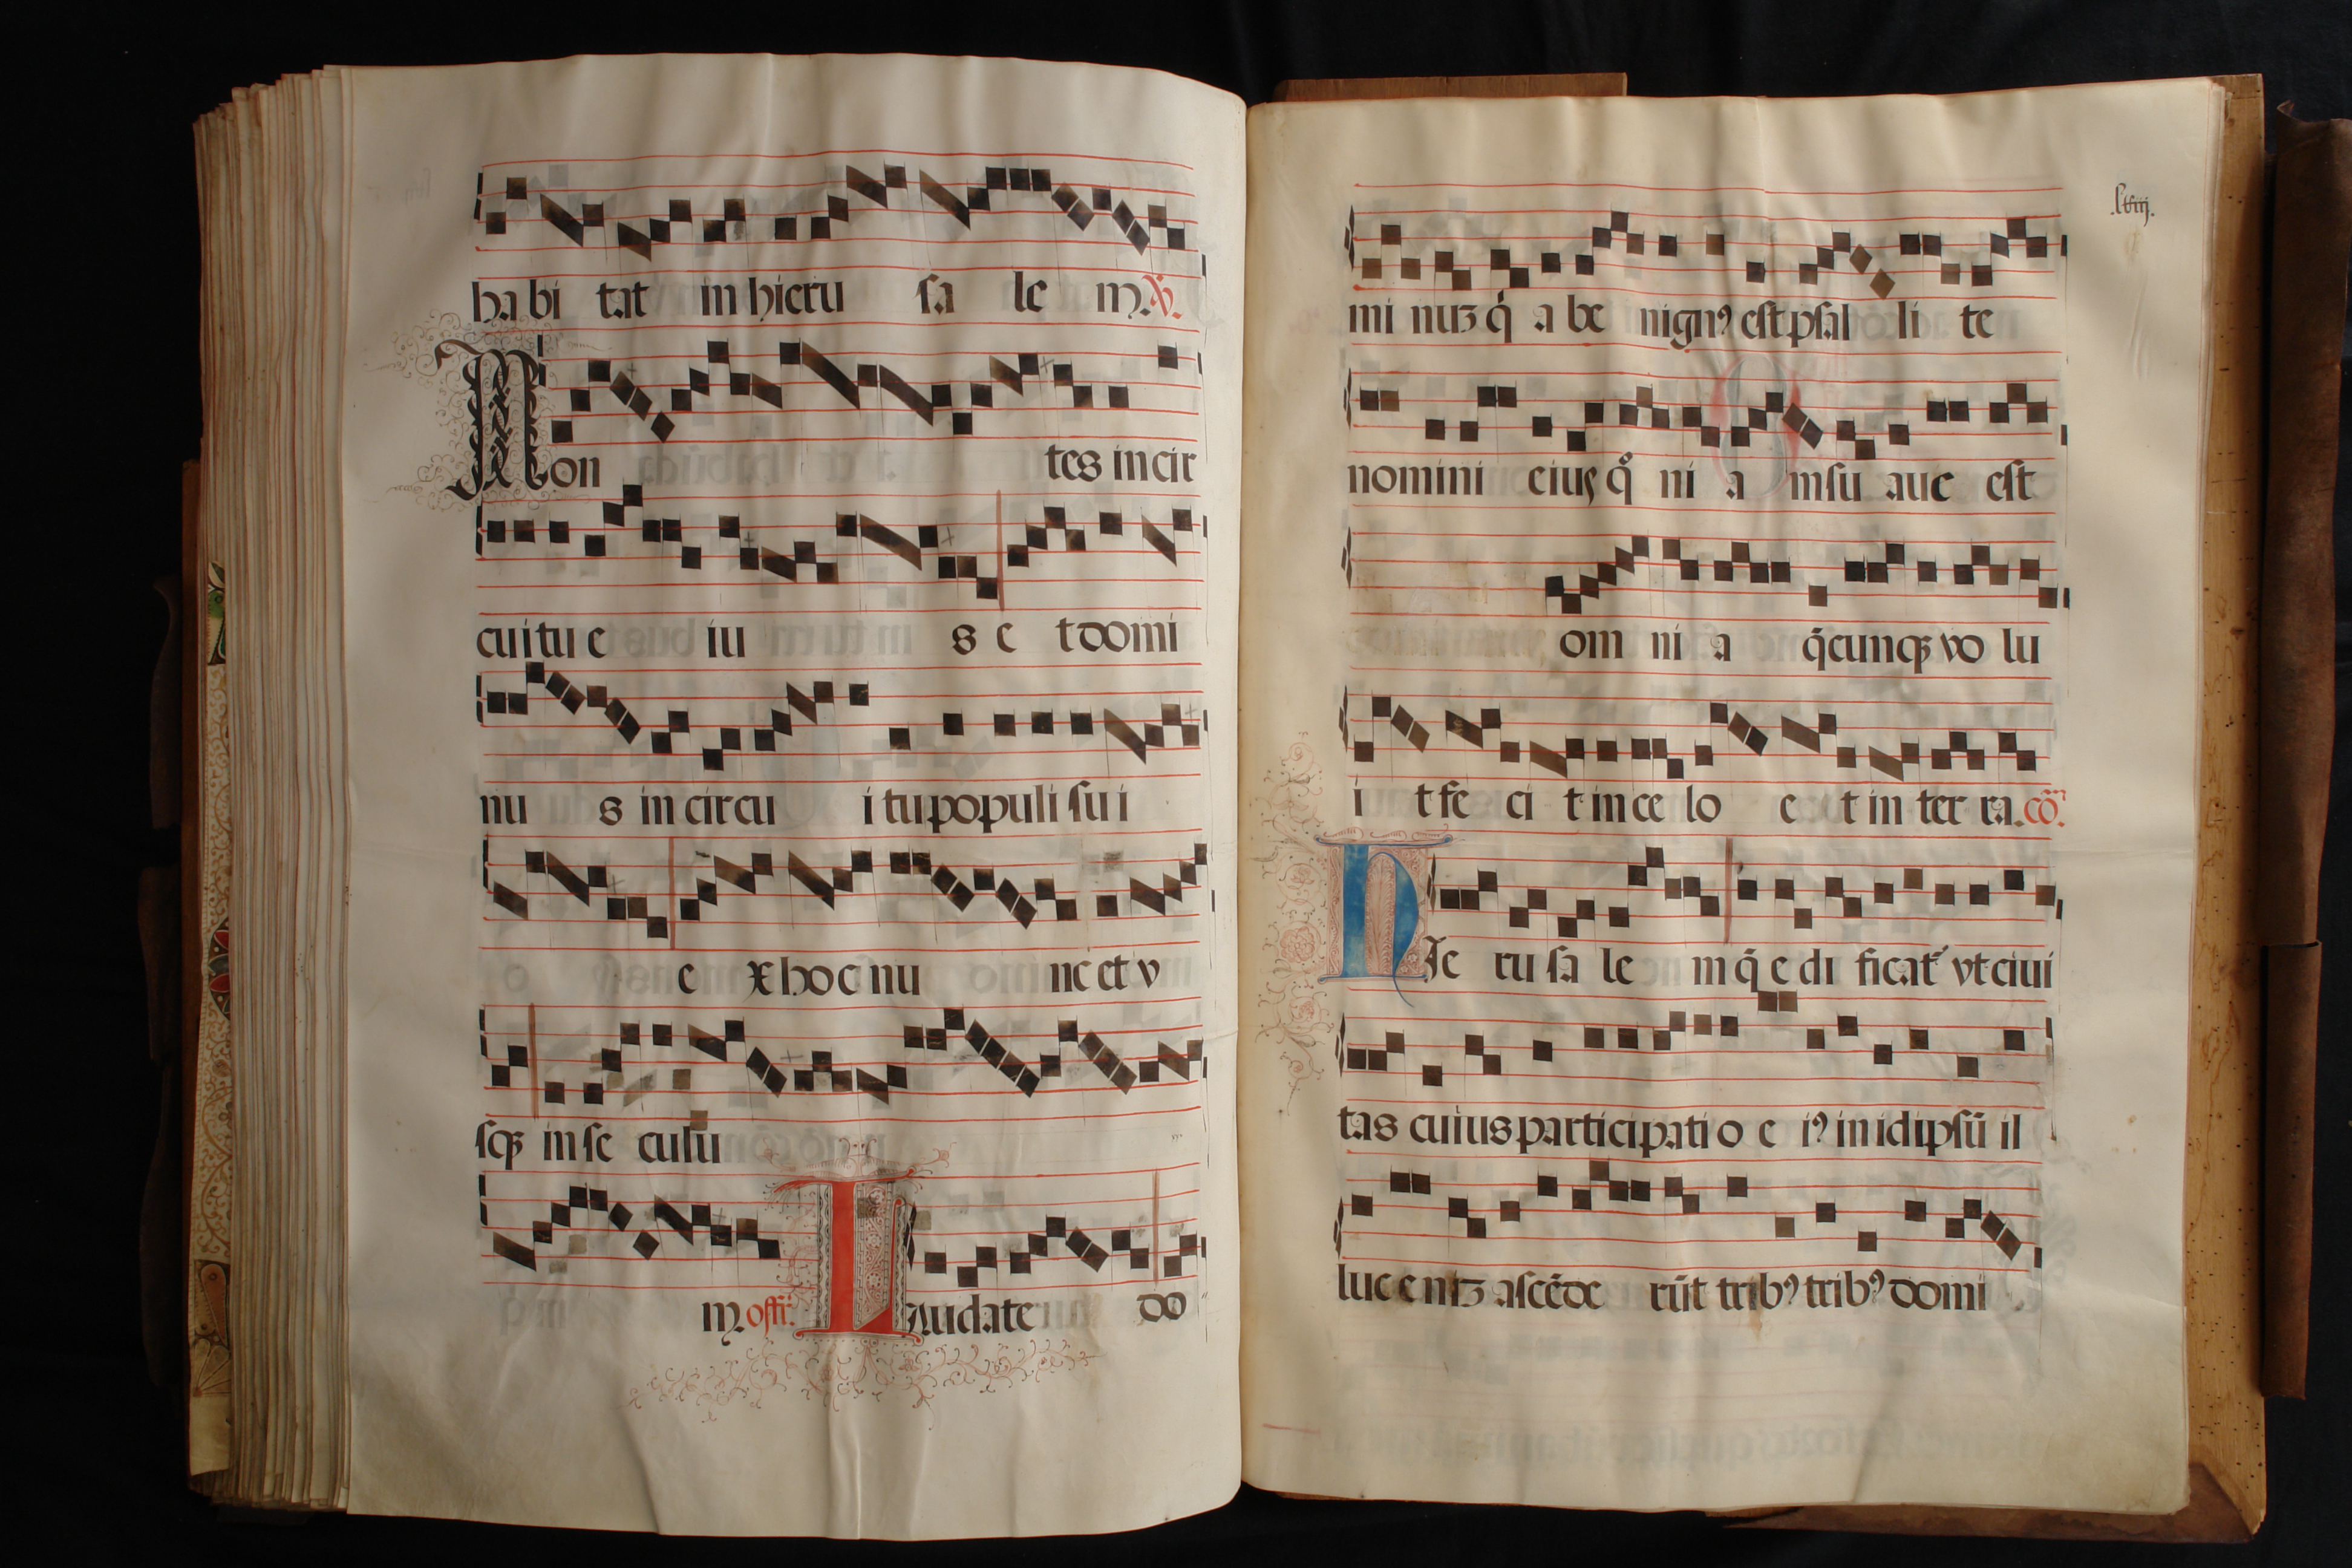 ha bi tat in hieru sa le m. V.
Mon tes in cir
cui tu e iu s e t domi
nu s in circu i tu populi su i
e x hoc nu nc et v
sqʒ in se culu
m. offr̄. Laudate do
.lviij.
mi nuʒ q̇ a be nignꝰ est psal li te
nomini eiuſ qͦ ni a m su aue est
om ni a q̄cunqʒ vo lu
i t fe ci t in ce lo e t in ter ra. cō.
HIe ru sa le m q̄ e di ficat᷑ vt ciui
tas cuius participati o e iꝰ in idipsū il
luc e niʒ ascēde rūt tribꝰ tribꝰ domi